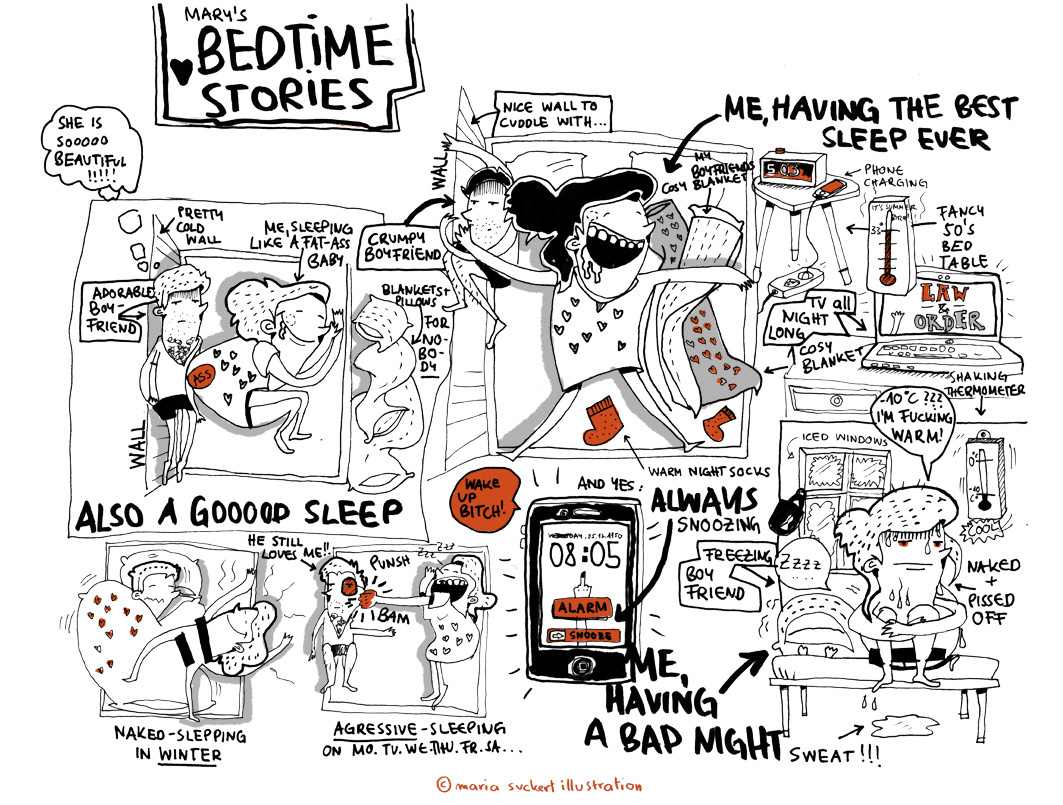 MARY'S
BEDTIME
STORIES
SHE IS
SOOOOO
BEAUTIFUL
!!!!!
PRETTY
COLD
WALL
ME, SLEEPING
LIKE A FAT-ASS
BABY
ADORABLE
BOY-
FRIEND
BLANKETS+
PILLOWS
FOR
NO-
BO-
DY
ASS
WALL
ALSO A GOOOOD SLEEP
NICE WALL TO
CUDDLE WITH...
WALL
CRUMPY
BOYFRIEND
ME, HAVING THE BEST
SLEEP EVER
MY
BOYFRIENDS
COSY BLANKET
5:03
PHONE
CHARGING
IT'S SUMMER
BITCH!
33°
FANCY
50'S
BED
TABLE
TV all
NIGHT
LONG
LAW
&
ORDER
COSY
BLANKET
WARM NIGHT SOCKS
SHAKING
THERMOMETER
-10°C ???
I'M FUCKING
WARM!
ICED WINDOWS
0°
-10
C°
COOL
NAKED
+
PISSED
OFF
FREEZING
BOY
FRIEND
Zzzz
SWEAT!!!
ME,
HAVING
A BAD NIGHT
WAKE
UP
BITCH!
AND YES:
ALWAYS
SNOOZING
08:05
ALARM
SNOOZE
NAKED-SLEPPING
IN WINTER
HE STILL
LOVES ME!!
PUNSH
BAM
ZZZ ZZZ
AGRESSIVE-SLEEPING
ON MO. TU. WE. THU. FR. SA...
© maria suckert illustration